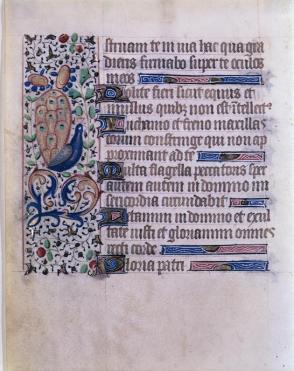 struam te in via hac qua gra
dieris firmabo super te oculos
meos
Nolite fieri sicut equus et
mulus quibus non est intellect
In chamo et freno maxillas
eorum constringe qui non ap
proximant ad te
Multa flagella peccatoris sper
antem autem in domino mi
sericordia circundabit
Letamini in domino et exul
tate iusti et gloriamini omnes
recti corde
Gloria patri